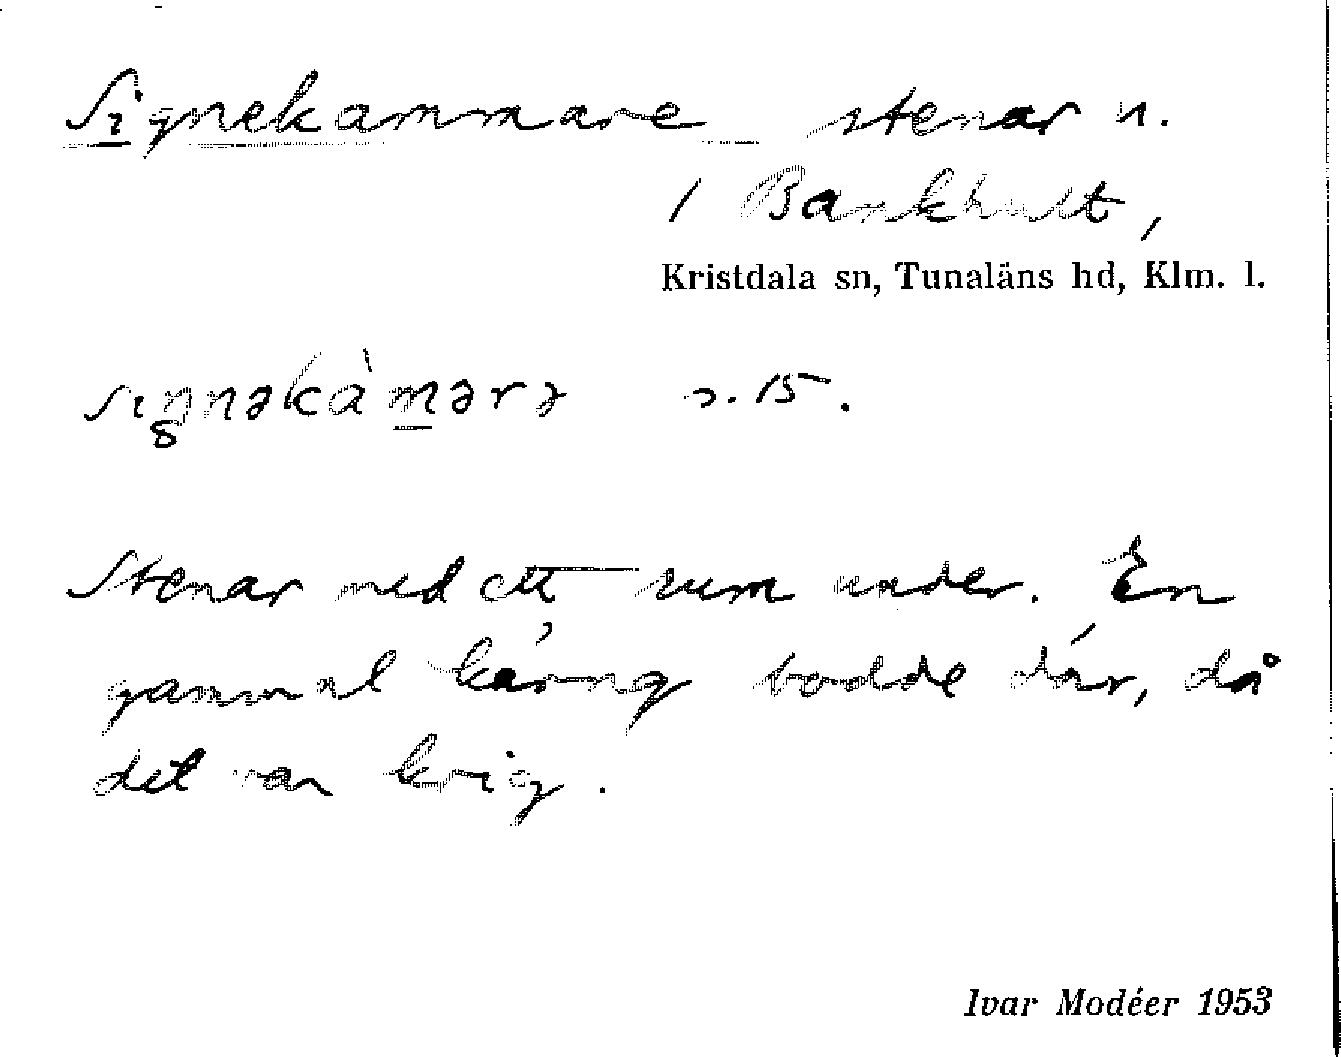 Signekammare stenar n.
/ Bankhult,
Kristdala sn, Tunaläns hd, Klm. l.
s. 15.
Stenar med ett rum under. En
gammal käring bodde där, då
det var krig.
Ivar Modéer 1953